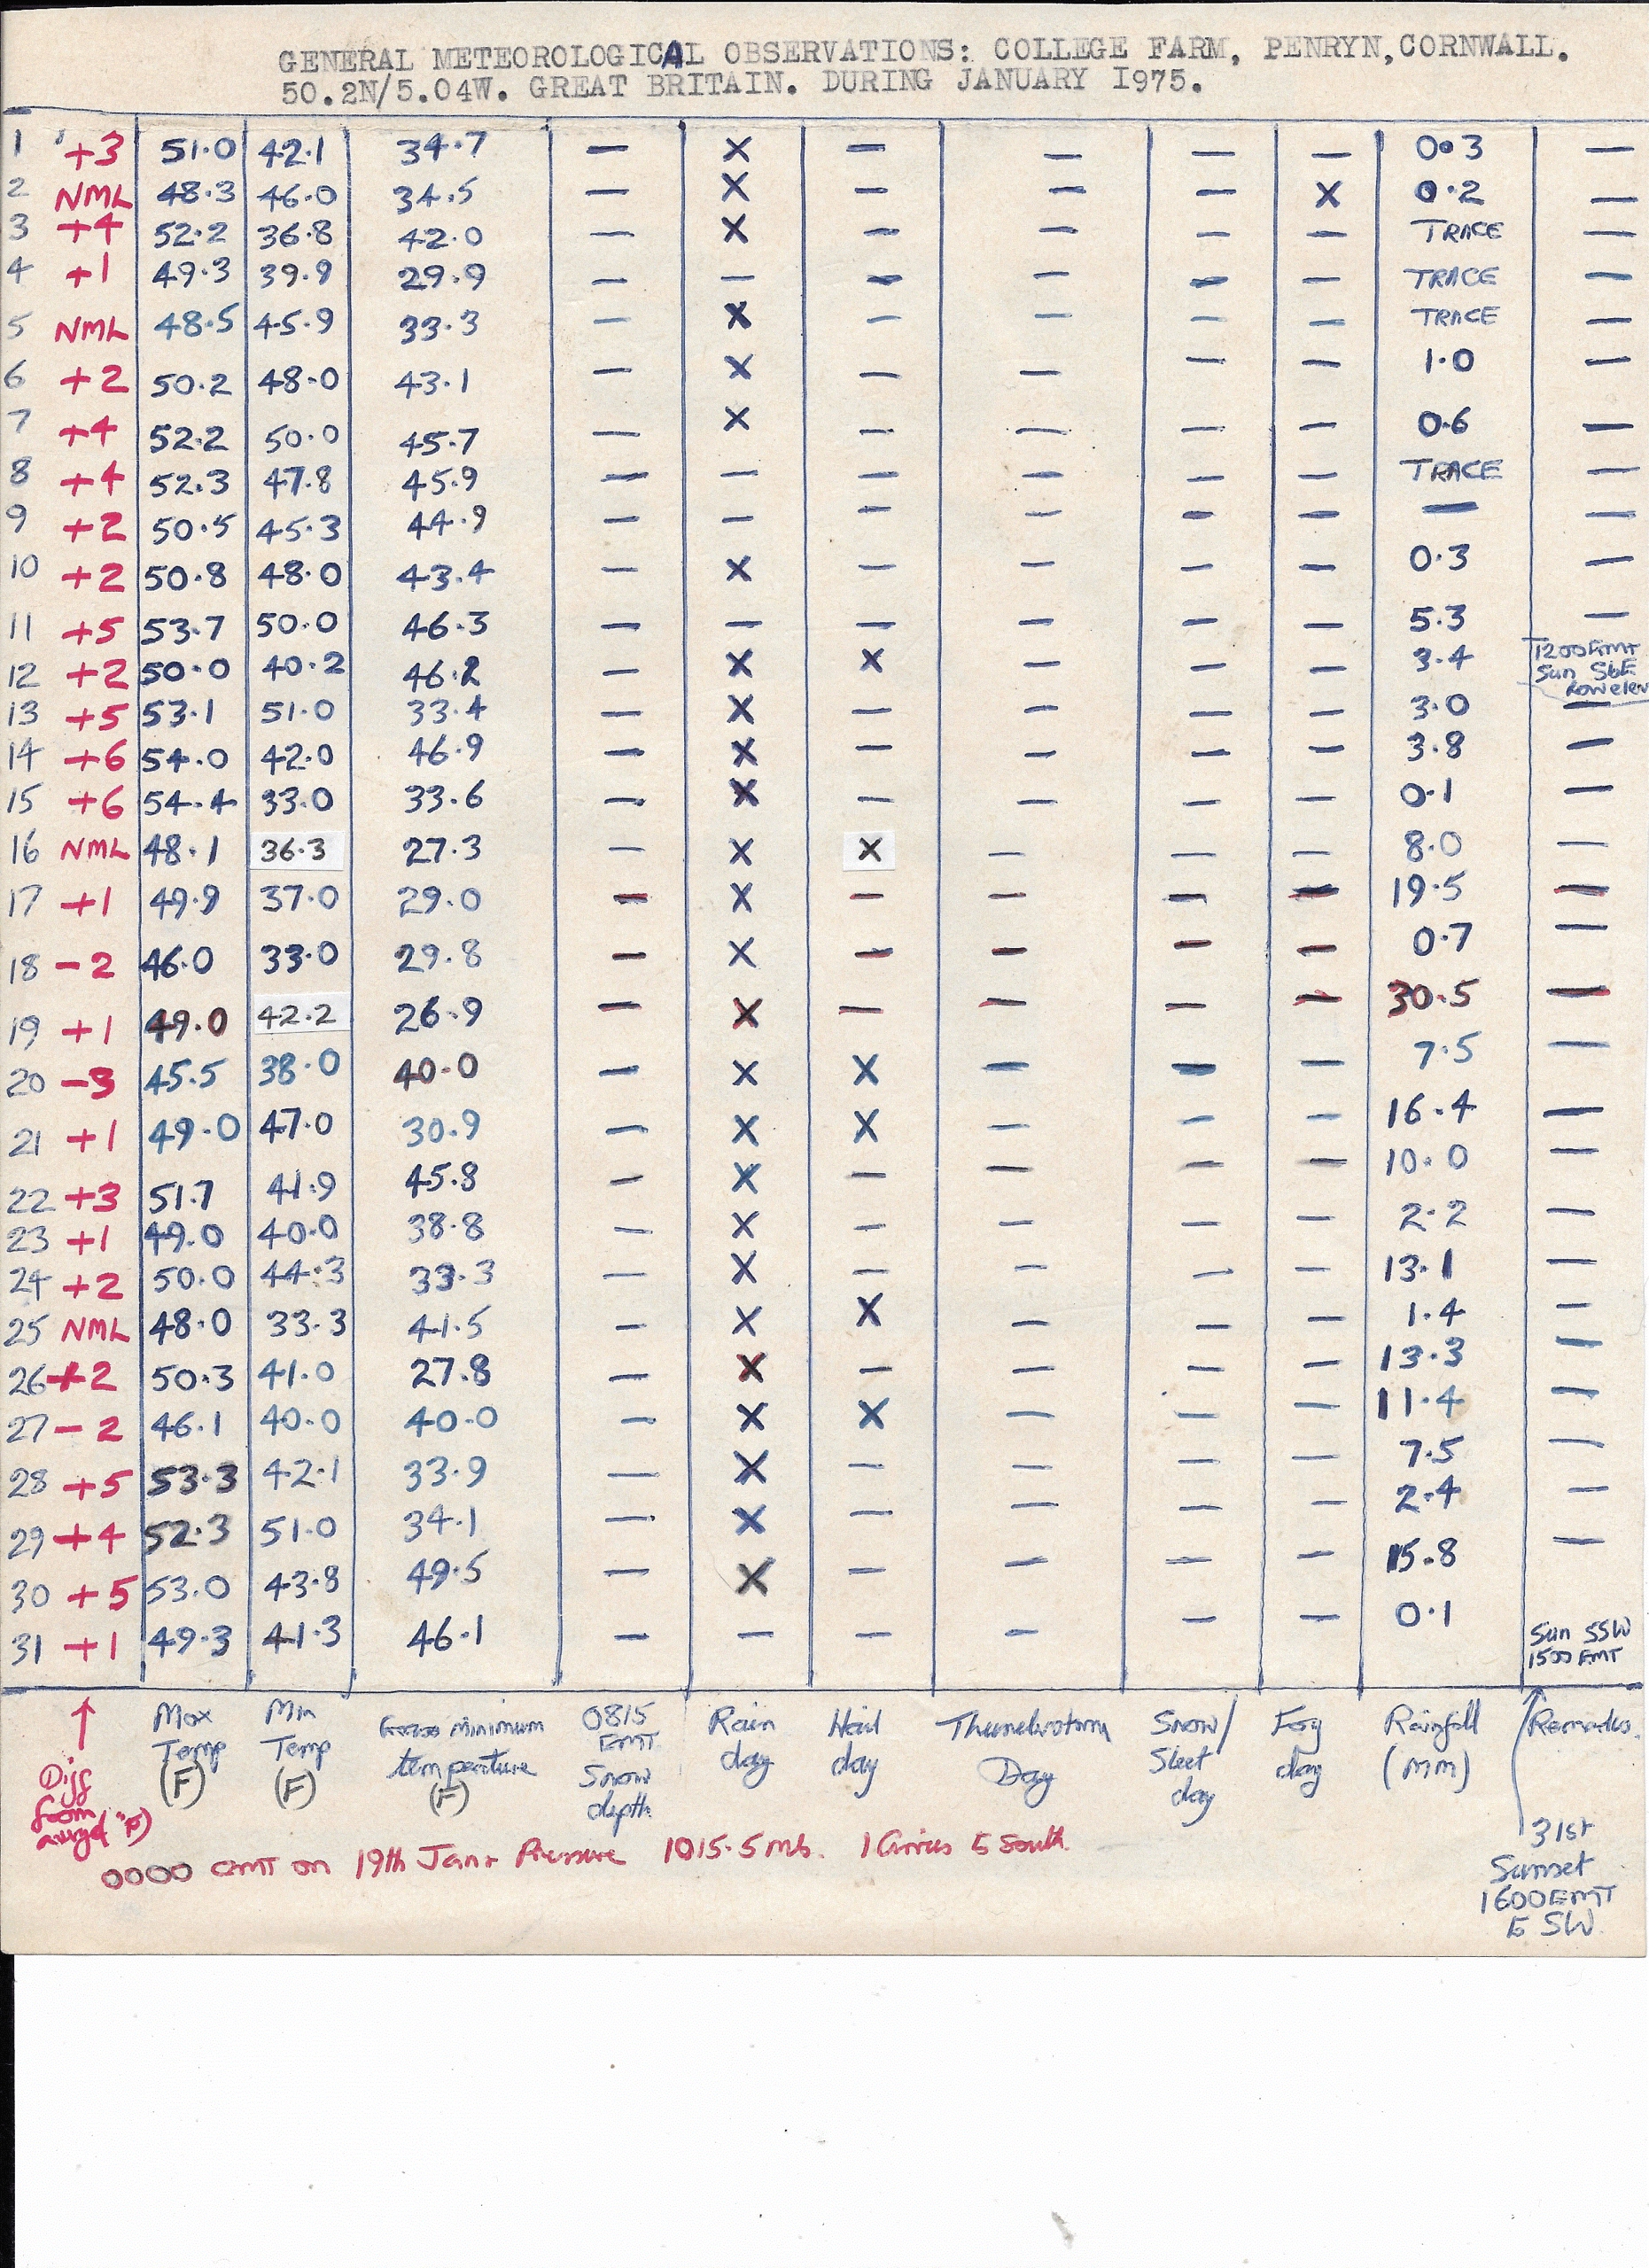 GENERAL METEOROLOGICAL OBSERVATIONS: COLLEGE FARM, PENRYN, CORNWALL.
50.2N/5.04W. GREAT BRITAIN. DURING JANUARY 1975.
1 +3 51.0 42.1 34.7 — X — — — — 0.3 —
2 NML 48.3 46.0 34.5 — X — — — X 0.2 —
3 +4 52.2 36.8 42.0 — X — — — — TRACE —
4 +1 49.3 39.9 29.9 — — — — — — TRACE —
5 NML 48.5 45.9 33.3 — X — — — — TRACE —
6 +2 50.2 48.0 43.1 — X — — — — 1.0 —
7 +4 52.2 50.0 45.7 — X — — — — 0.6 —
8 +4 52.3 47.8 45.9 — — — — — — TRACE —
9 +2 50.5 45.3 44.9 — — — — — — — —
10 +2 50.8 48.0 43.4 — X — — — — 0.3 —
11 +5 53.7 50.0 46.3 — — — — — — 5.3 —
12 +2 50.0 40.2 46.2 — X X — — — 3.4 1200 GMT
Sun SbE
low elev
13 +5 53.1 51.0 33.4 — X — — — — 3.0 —
14 +6 54.0 42.0 46.9 — X — — — — 3.8 —
15 +6 54.4 33.0 33.6 — X — — — — 0.1 —
16 NML 48.1 36.3 27.3 — X X — — — 8.0 —
17 +1 49.9 37.0 29.0 — X — — — — 19.5 —
18 -2 46.0 33.0 29.8 — X — — — — 0.7 —
19 +1 49.0 42.2 26.9 — X — — — — 30.5 —
20 -3 45.5 38.0 40.0 — X X — — — 7.5 —
21 +1 49.0 47.0 30.9 — X X — — — 16.4 —
22 +3 51.7 41.9 45.8 — X — — — — 10.0 —
23 +1 49.0 40.0 38.8 — X — — — — 2.2 —
24 +2 50.0 44.3 33.3 — X — — — — 13.1 —
25 NML 48.0 33.3 41.5 — X X — — — 1.4 —
26 +2 50.3 41.0 27.8 — X — — — — 13.3 —
27 -2 46.1 40.0 40.0 — X X — — — 11.4 —
28 +5 53.3 42.1 33.9 — X — — — — 7.5 —
29 +4 52.3 51.0 34.1 — X — — — — 2.4 —
30 +5 53.0 43.8 49.5 — X — — — — 15.8 —
31 +1 49.3 41.3 46.1 — — — — — — 0.1 Sun SSW
1500 GMT
Diff
from
avrge(°F)
Max
Temp
(F)
Min
Temp
(F)
Grass minimum
temperature
(F)
0815
GMT
Snow
depth
Rain
day
Hail
day
Thunderstorm
Day
Snow/
Sleet
day
Fog
day
Rainfall
(MM)
Remarks.
31st
Sunset
1600 GMT
SW
0000 GMT on 19th Jan Pressure 1015.5 mb. 1 Cirrus South